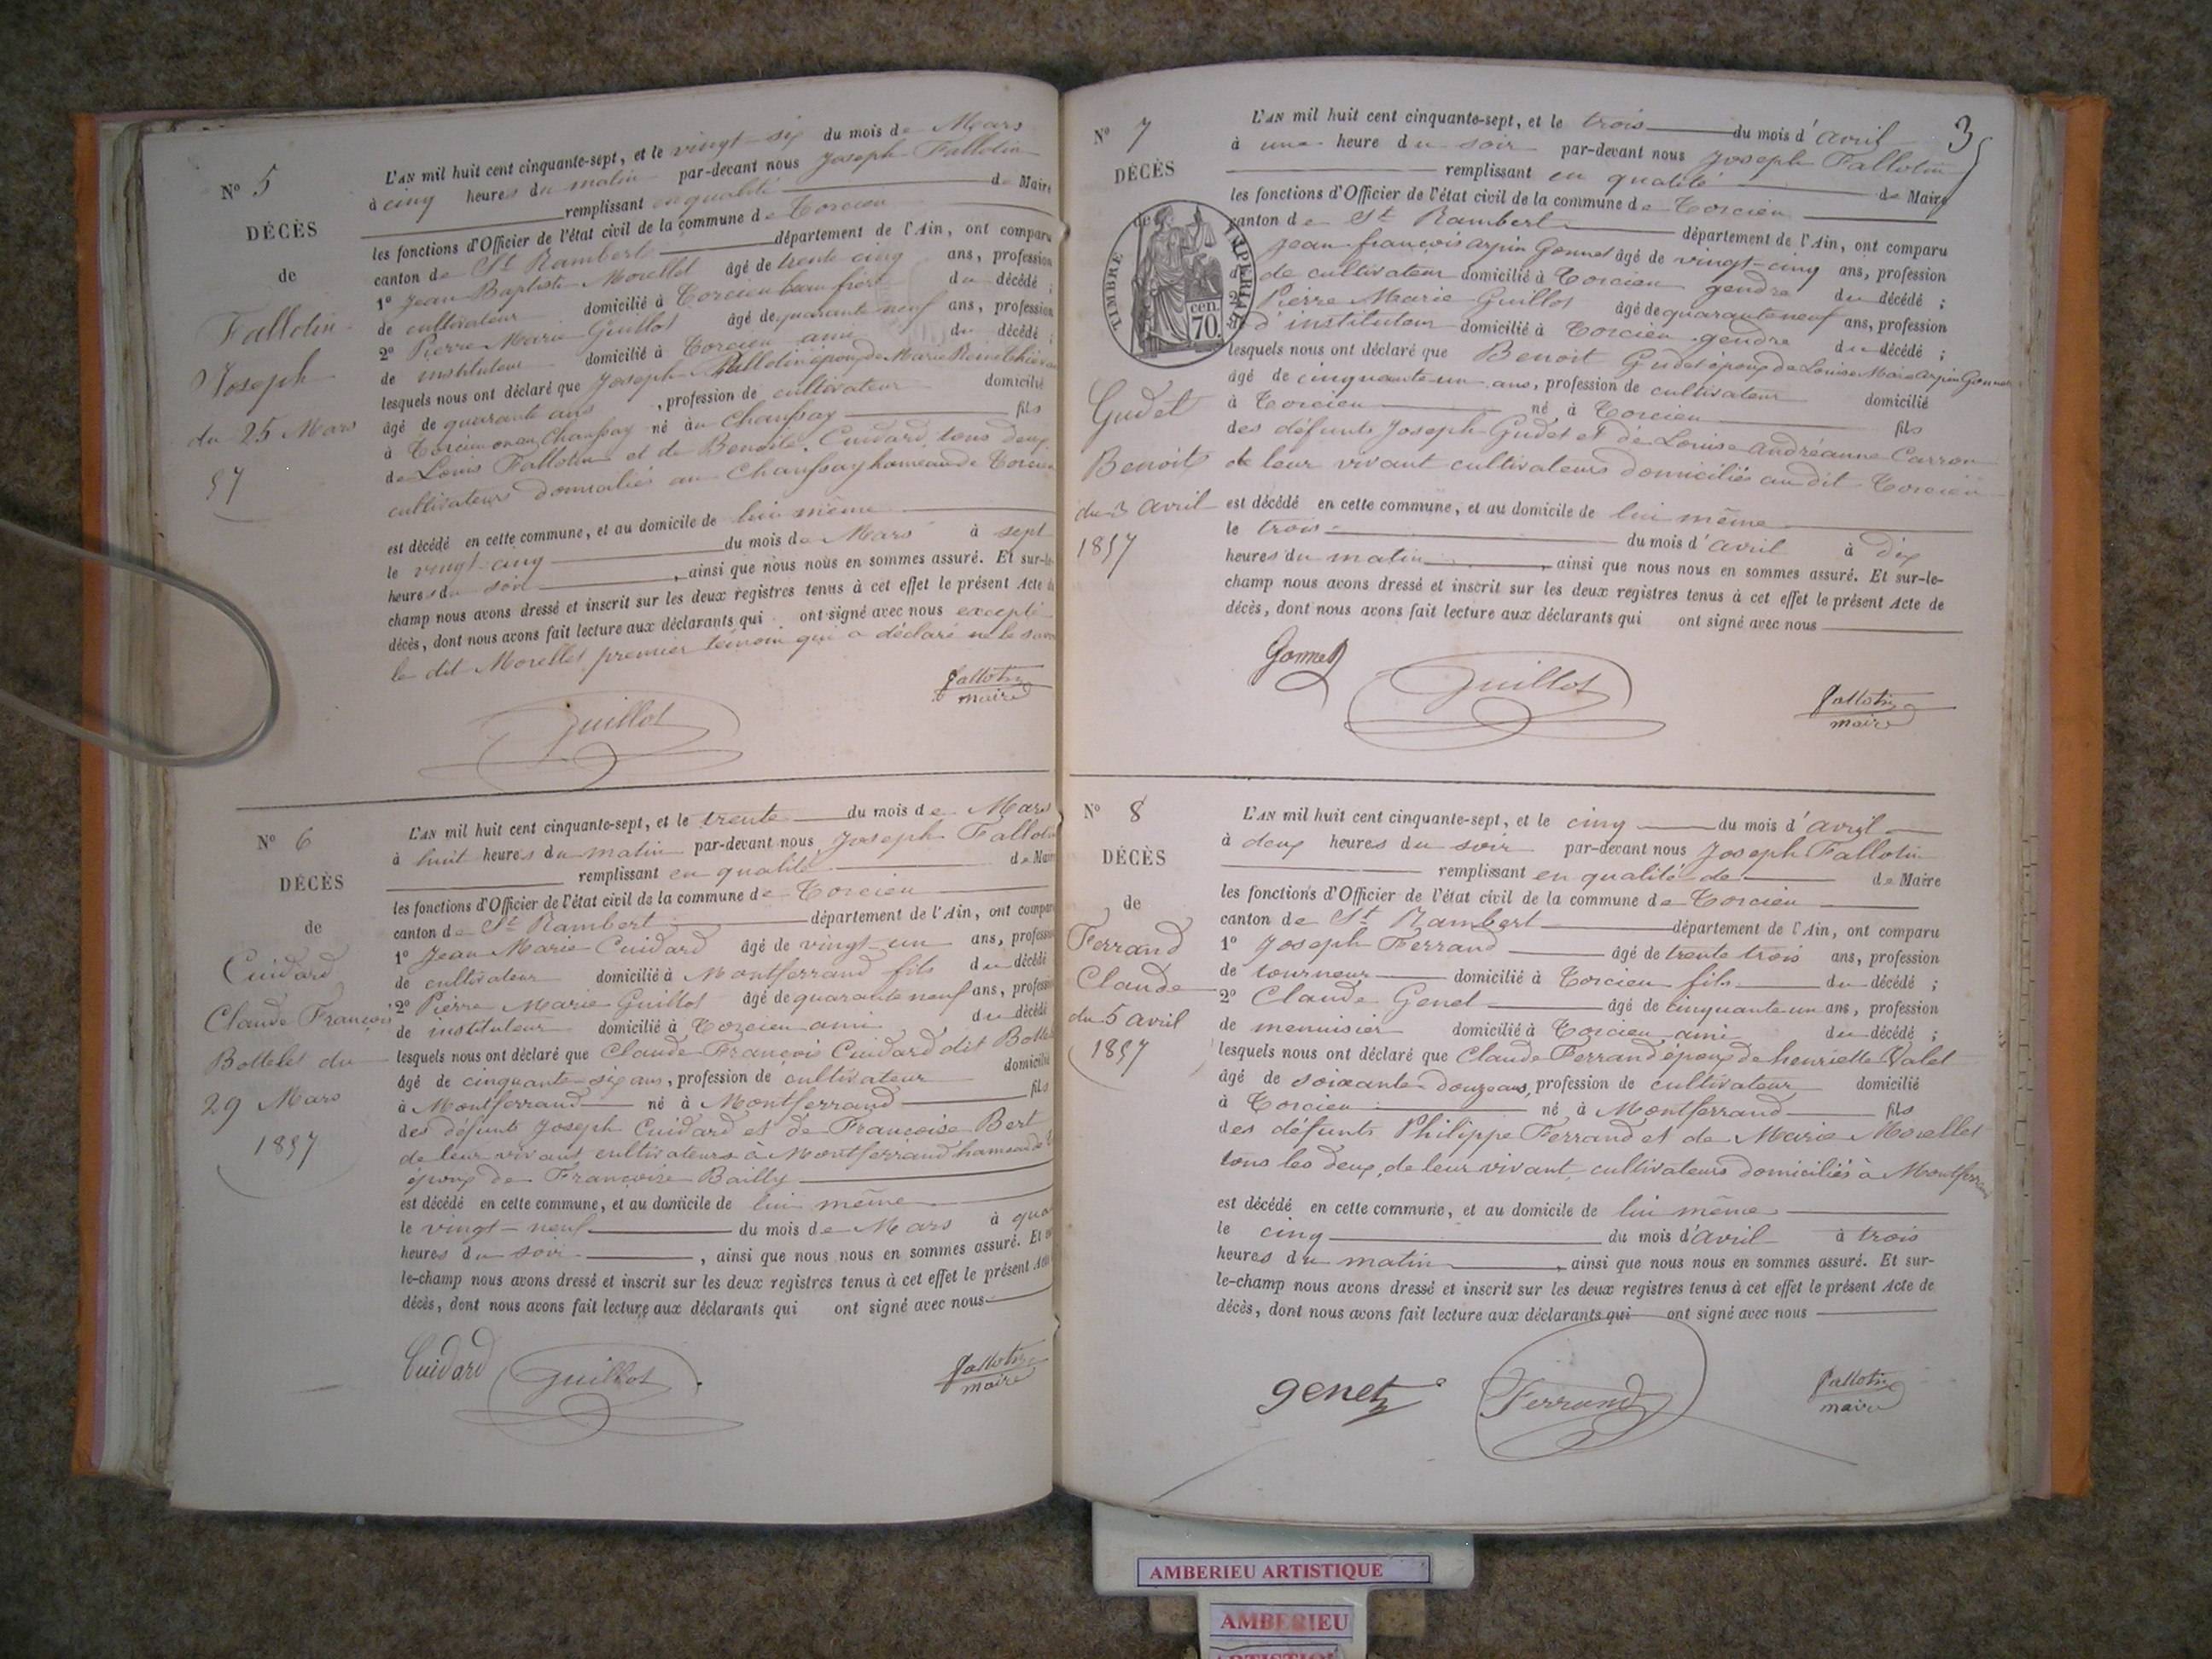 N° 5
DÉCÈS
de
Fallotin
Joseph
du 25 Mars
57
L'AN mil huit cent cinquante-sept, et le vingt-six du mois de Mars
à cinq heures du matin par-devant nous Joseph Fallotin
remplissant en qualité de Maire
les fonctions d'Officier de l'état civil de la commune de Torcieu
canton de St Rambert département de l'Ain, ont comparu
1° Jean Baptiste Morellet âgé de trente cinq ans, profession
de cultivateur domicilié à Torcieu beau frère du décédé ;
2° Pierre Marie Guillot âgé de quarante neuf ans, profession
de instituteur domicilié à Torcieu ami du décédé ;
lesquels nous ont déclaré que Joseph Fallotin époux de Marie
âgé de quarante ans, profession de cultivateur domicilié
à Torcieu Chaussay né au Chaussay fils
de Louis Fallotin et de Benoite Cuidard, tous deux
cultivateurs domiciliés au Chaussay hameau de Torcieu
est décédé en cette commune, et au domicile de lui même
le vingt-cinq du mois de Mars à sept
heures du soir, ainsi que nous nous en sommes assuré. Et sur-le-
champ nous avons dressé et inscrit sur les deux registres tenus à cet effet le présent Acte de
décès, dont nous avons fait lecture aux déclarants qui ont signé avec nous excepté
le dit Morellet premier témoin qui a déclaré ne le savoir
Guillot
fallotin
maire
N° 6
DÉCÈS
de
Cuidard
Claude François
Bottelet du
29 Mars
1857
L'AN mil huit cent cinquante-sept, et le trente du mois de Mars
à huit heures du matin par-devant nous Joseph Fallotin
remplissant en qualité de Maire
les fonctions d'Officier de l'état civil de la commune de Torcieu
canton de St Rambert département de l'Ain, ont comparu
1° Jean Marie Cuidard âgé de vingt-un ans, profession
de cultivateur domicilié à Montferrand fils du décédé
2° Pierre Marie Guillot âgé de quarante neuf ans, profession
de instituteur domicilié à Torcieu ami du décédé
lesquels nous ont déclaré que Claude François Cuidard dit Bottelet
âgé de cinquante-six ans, profession de cultivateur domicilié
à Montferrand né à Montferrand fils
des défunts Joseph Cuidard et de Françoise Bert
de leur vivant cultivateurs à Montferrand hameau de
époux de Françoise Bailly
est décédé en cette commune, et au domicile de lui même
le vingt-neuf du mois de Mars à
heures du soir, ainsi que nous nous en sommes assuré. Et sur-
le-champ nous avons dressé et inscrit sur les deux registres tenus à cet effet le présent Acte
décès, dont nous avons fait lecture aux déclarants qui ont signé avec nous
Cuidard
Guillot
fallotin
maire
3
N° 7
DÉCÈS
de
TIMBRE IMPÉRIAL
70 cen.
Gudet
Benoit
du 3 avril
1857
L'AN mil huit cent cinquante-sept, et le trois du mois d'avril
à une heure du soir par-devant nous Joseph Fallotin
remplissant en qualité de Maire
les fonctions d'Officier de l'état civil de la commune de Torcieu
canton de St Rambert département de l'Ain, ont comparu
Jean françois arpin Gonnet âgé de vingt-cinq ans, profession
de cultivateur domicilié à Torcieu gendre du décédé ;
2° Pierre Marie Guillot âgé de quarante neuf ans, profession
d'instituteur domicilié à Torcieu gendre du décédé ;
lesquels nous ont déclaré que Benoit Gudet époux de Louise Marie arpin Gonnet
âgé de cinquante un ans, profession de cultivateur domicilié
à Torcieu né à Torcieu fils
des défunts Joseph Gudet et de Louise andréanne Carron
de leur vivant cultivateurs domiciliés au dit Torcieu
est décédé en cette commune, et au domicile de lui même
le trois du mois d'avril à dix
heures du matin, ainsi que nous nous en sommes assuré. Et sur-le-
champ nous avons dressé et inscrit sur les deux registres tenus à cet effet le présent Acte de
décès, dont nous avons fait lecture aux déclarants qui ont signé avec nous
Gonnet
Guillot
fallotin
maire
N° 8
DÉCÈS
de
Ferrand
Claude
du 5 avril
1857
L'AN mil huit cent cinquante-sept, et le cinq du mois d'avril
à deux heures du soir par-devant nous Joseph Fallotin
remplissant en qualité de de Maire
les fonctions d'Officier de l'état civil de la commune de Torcieu
canton de St Rambert département de l'Ain, ont comparu
1° Joseph Ferrand âgé de trente trois ans, profession
de tourneur domicilié à Torcieu fils du décédé ;
2° Claude Genet âgé de cinquante un ans, profession
de menuisier domicilié à Torcieu ami du décédé ;
lesquels nous ont déclaré que Claude Ferrand époux de henriette Valet
âgé de soixante-douze ans, profession de cultivateur domicilié
à Torcieu né à Montferrand fils
des défunts Philippe Ferrand et de Marie Morellet
tous les deux de leur vivant cultivateurs domiciliés à Montferrand
est décédé en cette commune, et au domicile de lui même
le cinq du mois d'avril à trois
heures du matin, ainsi que nous nous en sommes assuré. Et sur-
le-champ nous avons dressé et inscrit sur les deux registres tenus à cet effet le présent Acte de
décès, dont nous avons fait lecture aux déclarants qui ont signé avec nous
genet
Ferrand
fallotin
maire
AMBERIEU ARTISTIQUE
AMBERIEU
ARTISTIQUE